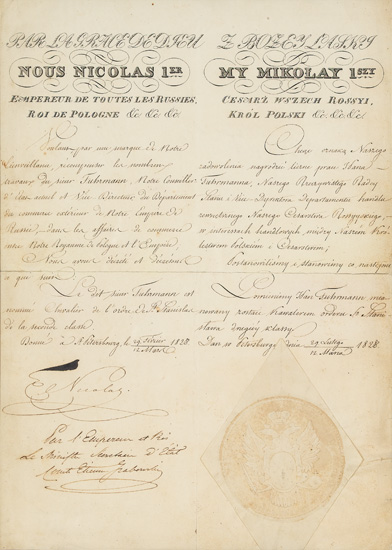 PAR LA GRACE DE DIEU
NOUS NICOLAS 1ER
EMPEREUR DE TOUTES LES RUSSIES,
ROI DE POLOGNE &c &c &c
Voulant par une marque de Notre
Bienveillance, récompenser les nombreux
travaux du sieur Fuhrmann, Notre Conseiller
d'Etat actuel et Vice Directeur du Département
du commerce extérieur de Notre Empire de
Russie, dans les affaires de commerce
entre Notre Royaume de Pologne et l'Empire,
Nous avons décrété et décrétons
ce qui suit
Le dit sieur Fuhrmann est
nommé Chevalier de l'ordre de St. Stanislas
de la seconde classe
Donné à St. Petersbourg, le 29 Février / 12 Mars 1828.
Nicolas
Par l'Empereur et Roi
Le Ministre Secrétaire d'Etat
Comte Etienne Grabowski
Z BOZEY LASKI
MY MIKOLAY 1SZY
CESARZ WSZECH ROSSYI,
KRÓL POLSKI &c &c &c
Chcąc oznaką Naszego
zadowolenia nagrodzić liczne prace Pana
Fuhrmanna, Naszego Rzeczywistego Radcy
Stanu i Vice Dyrektora Departamentu handlu
zewnętrznego Naszego Cesarstwa Rossyyskiego,
w interessach handlowych między Naszem Kró-
lestwem Polskiem i Cesarstwem;
Postanowiliśmy i stanowimy co następuje
Pomieniony Pan Fuhrmann mia-
nowany zostaje Kawalerem orderu Sgo Stani-
sława drugiey klassy
Dan w Petersburgu dnia 29 Lutego / 12 Marca 1828.